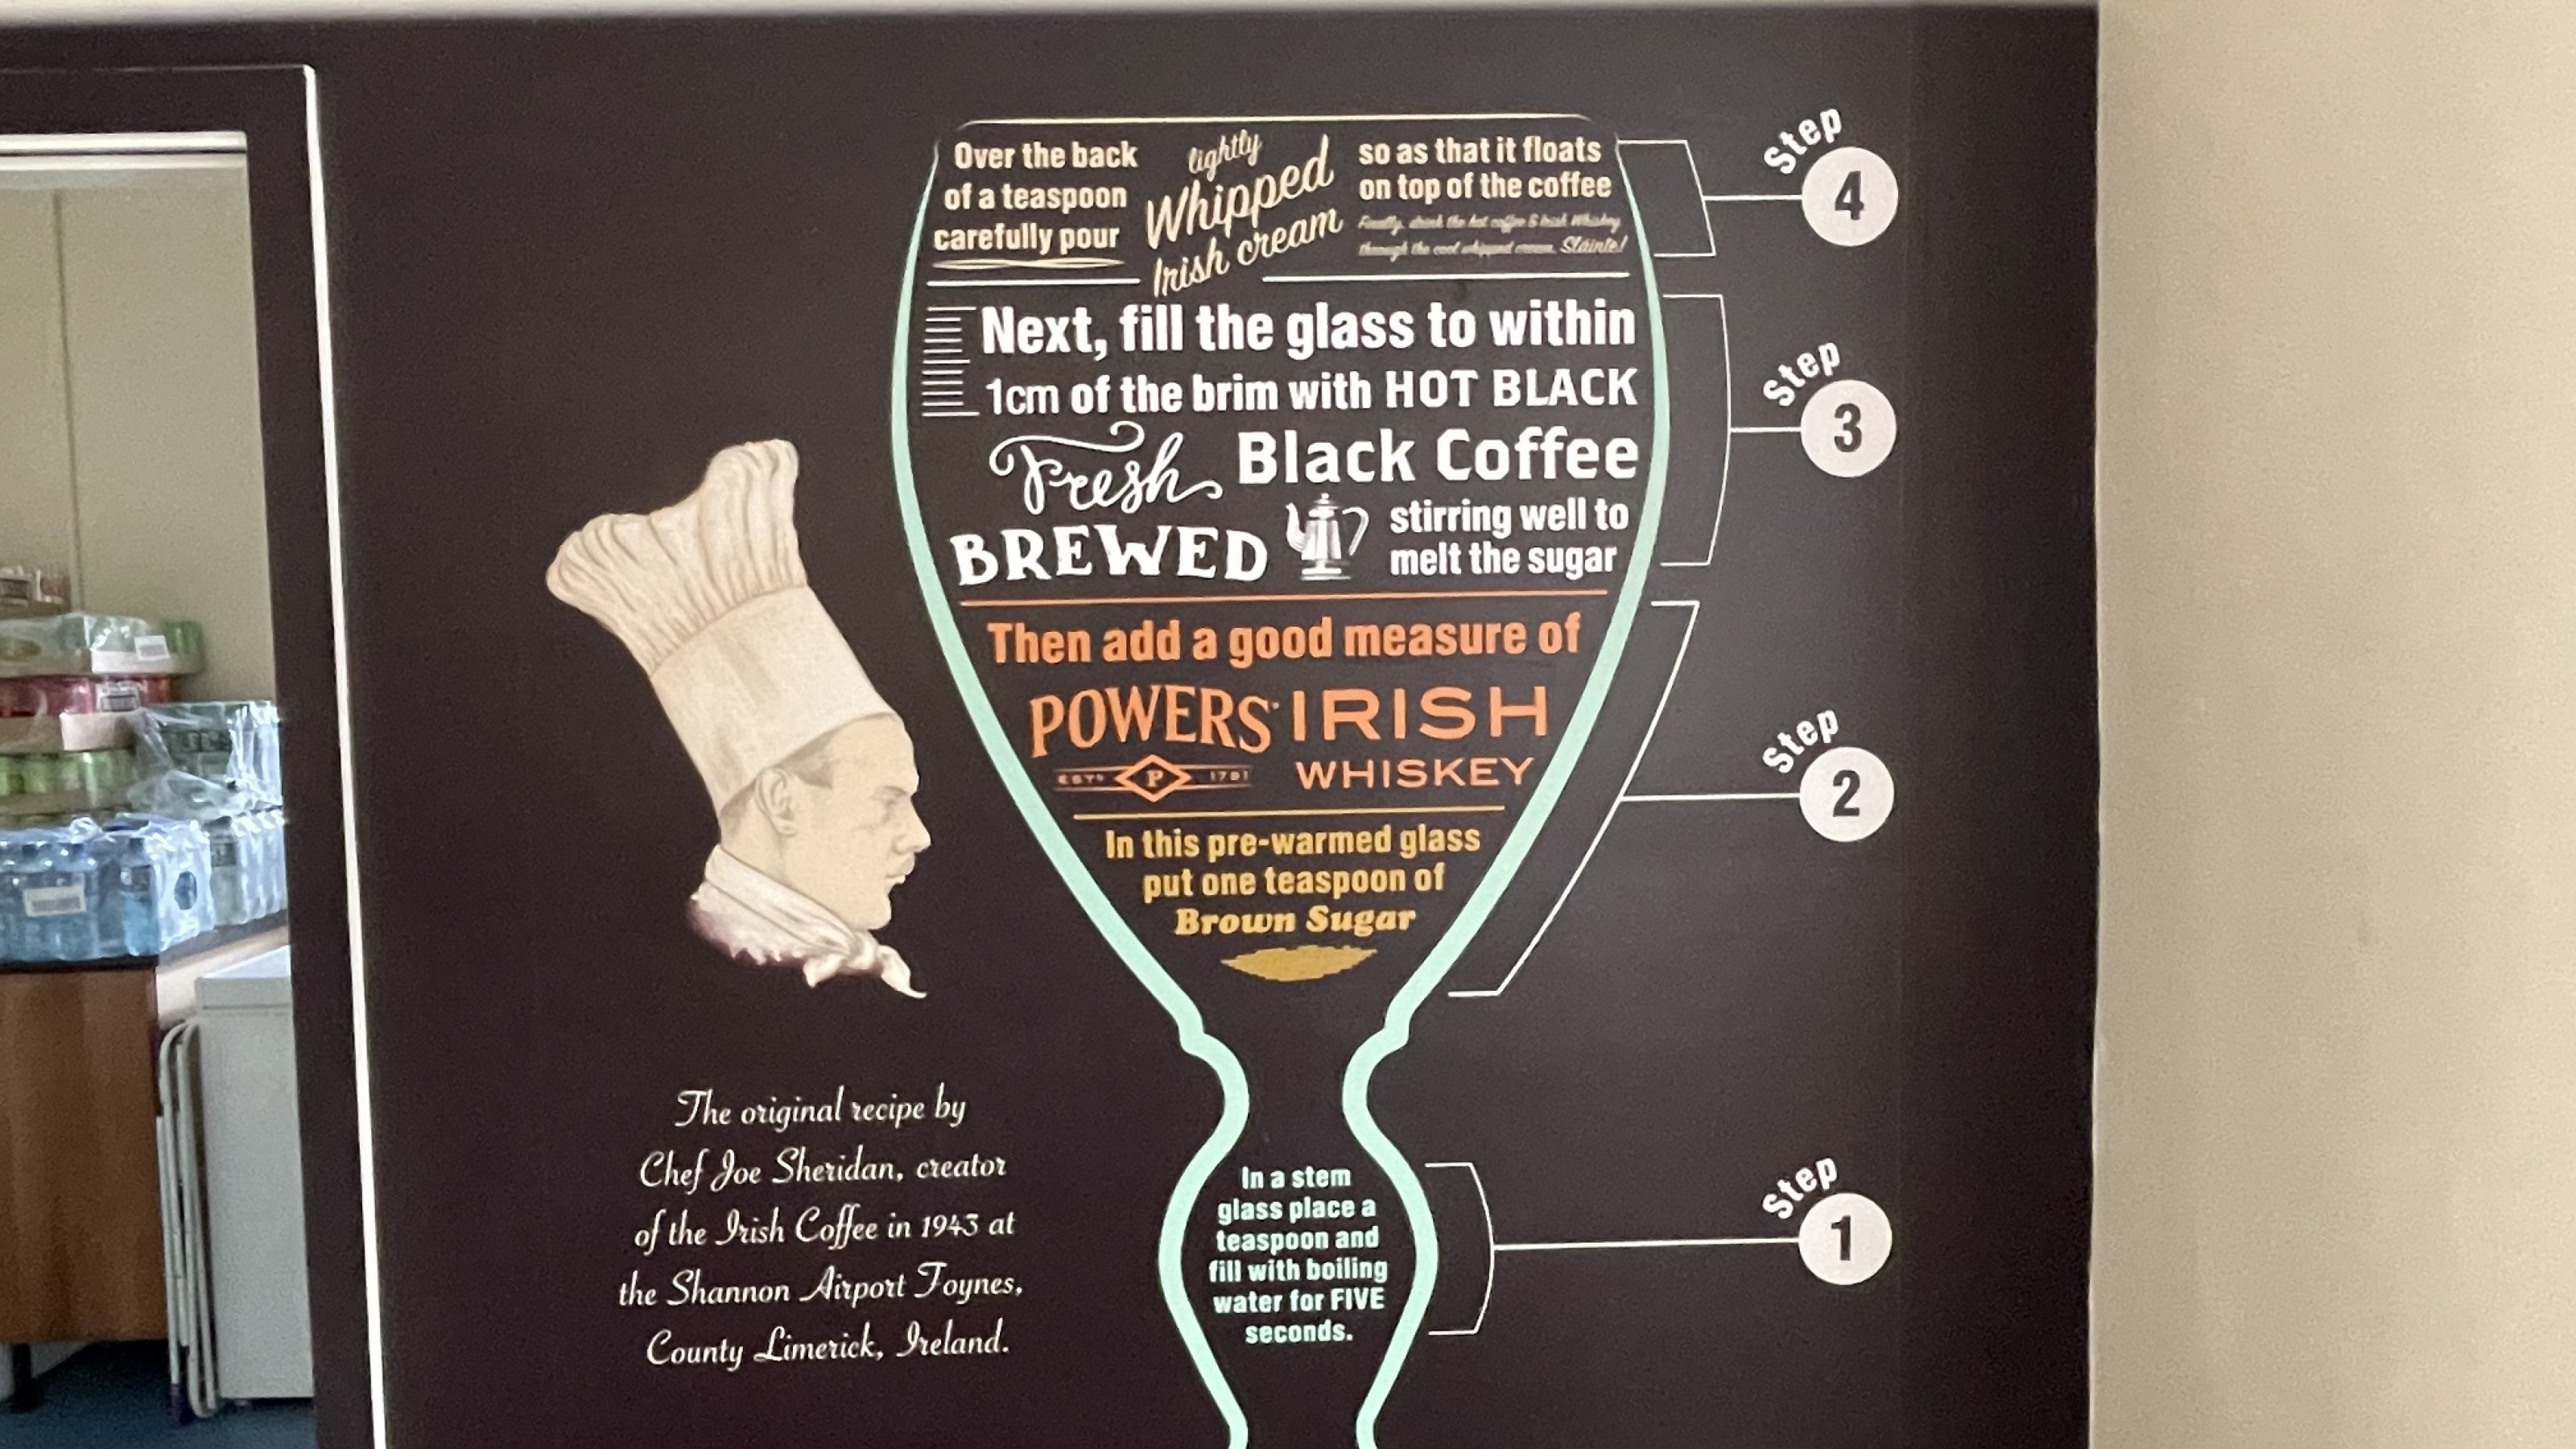 Over the back
of a teaspoon
carefully pour
lightly
Whipped
Irish cream
so as that it floats
on top of the coffee
Finally, drink the hot coffee & Irish Whiskey
through the cool whipped cream. Sláinte!
Step
4
Next, fill the glass to within
1cm of the brim with HOT BLACK
Fresh Black Coffee
BREWED
stirring well to
melt the sugar
Step
3
Then add a good measure of
POWERS IRISH
ESTD P 1791 WHISKEY
In this pre-warmed glass
put one teaspoon of
Brown Sugar
Step
2
In a stem
glass place a
teaspoon and
fill with boiling
water for FIVE
seconds.
Step
1
The original recipe by
Chef Joe Sheridan, creator
of the Irish Coffee in 1943 at
the Shannon Airport Foynes,
County Limerick, Ireland.